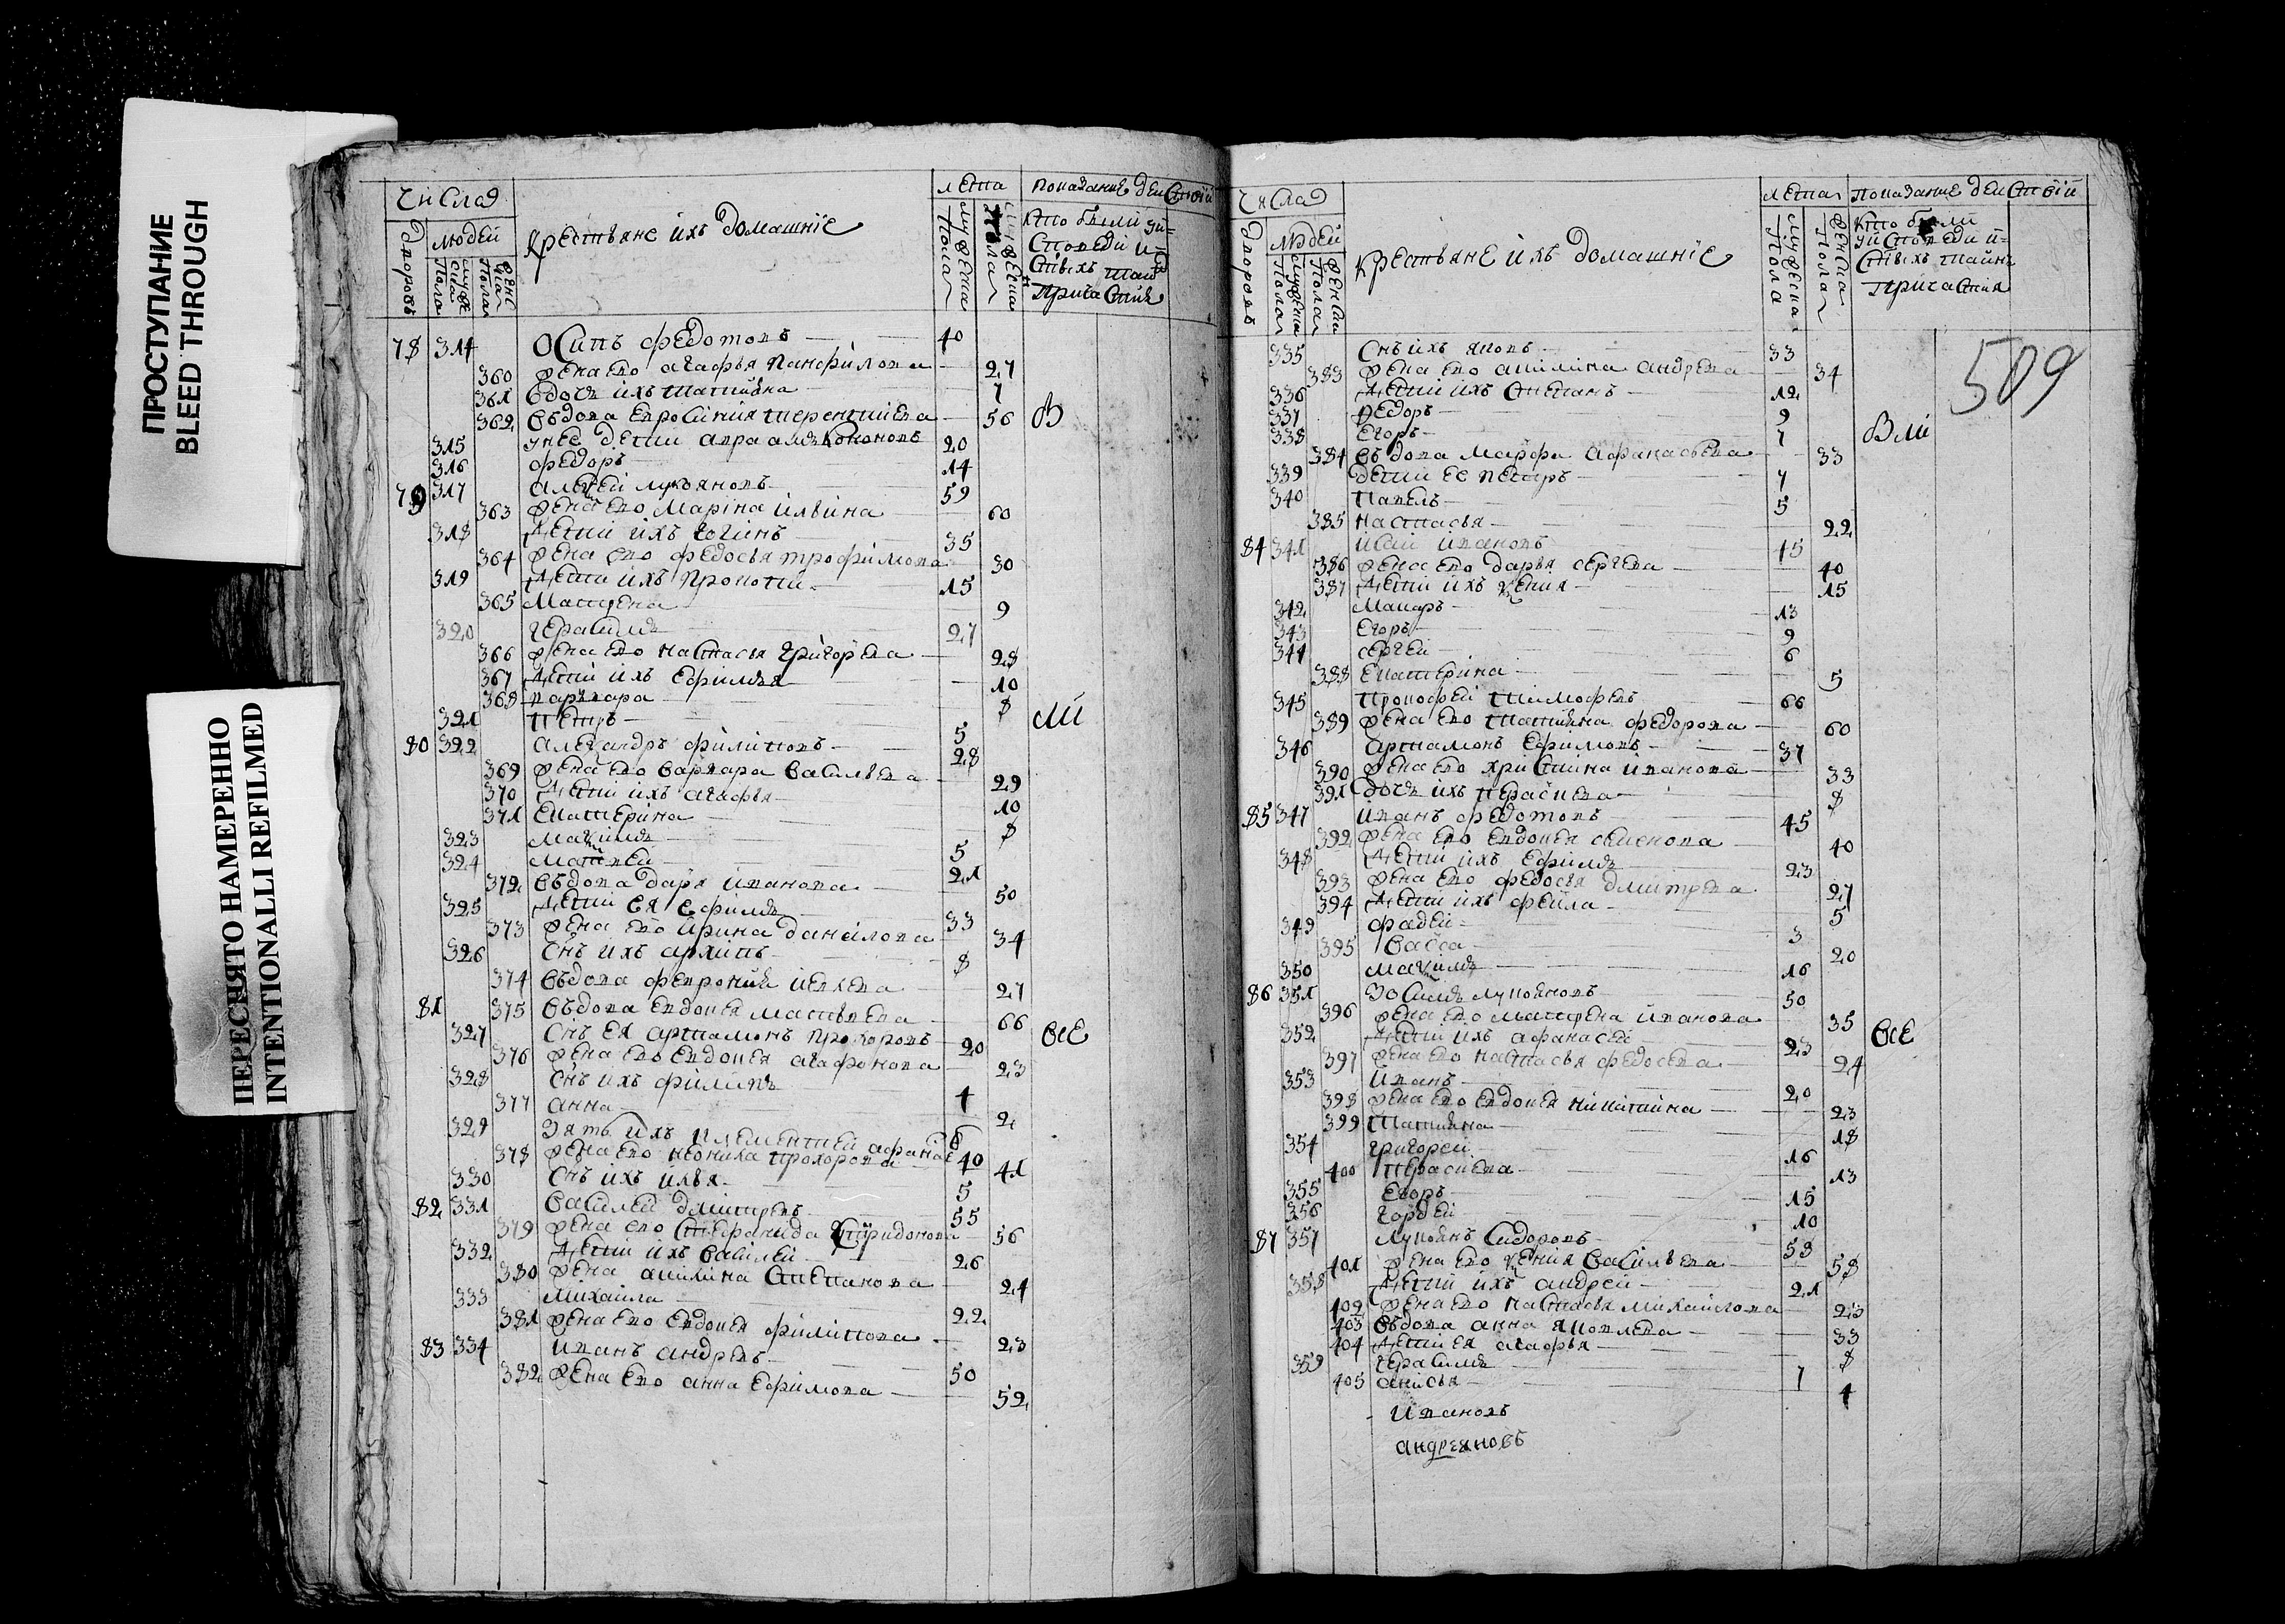 ПРОСТУПАНИЕ
BLEED THROUGH
ПЕРЕСНЯТО НАМЕРЕННО
INTENTIONALLI REFILMED
числа
людей
дворовъ
мужеска пола
женска пола
крестьяне ихъ домашнїе
лета
мужеска пола
женска пола
показание действий
кто были у и=
споведи и
святыхъ таинъ
причастия
78 314 Осипъ федотовъ 40
360 жена ево агафья панфилова 27
361 дочь ихъ татияна 7
362 вдова евросиния терентиева 56 в
315 у нее дети авраамъ кононовъ 20
316 федоръ 14
79 317 алексей лукьяновъ 59
363 жена ево марина ильина 60
318 дети ихъ логинъ 35
364 жена ево федосья трофимова 30
319 дети ихъ прокопии 15
365 матрена 9
320 герасимъ 27
366 жена ево настасья григорева 28
367 дети ихъ ефимья 10
368 варвара 8
321 петръ 5 ли
80 322 александръ филиповъ 28
369 жена ево варвара васильева 29
370 дети ихъ агафья 10
371 екатерина 8
323 максимъ 5
324 матвей 21
372 вдова даря иванова 50
325 дети ея ефимъ 33
373 жена ево ирина данилова 34
326 снъ ихъ архипъ 8
374 вдова феврония иевлева 27
81 375 вдова евдокия матвеева 66
327 снъ ея артамонъ прохоровъ 20 все
376 жена ево евдокия агафонова 23
328 снъ ихъ филипъ 4
377 анна 2
329 зять ихъ клементей афанасе 40
378 жена ево неонила прохорова 41
330 снъ ихъ илья 5
82 331 василей дмитревъ 55
379 жена ево стефанида спиридонова 56
332 дети ихъ василей 26
380 жена акилина степанова 24
333 михаила 22
381 жена ево евдокия филипова 23
83 334 иванъ андревъ 50
382 жена ево анна ефимова 52
числа
людей
дворовъ
мужеска пола
женска пола
крестьяне ихъ домашнїе
лета
мужеска пола
женска пола
показание действий
кто были
у исповеди и=
святыхъ таинъ
причастия
509
335 снъ ихъ яковъ 33
383 жена ево акилина андрева 34
336 дети ихъ степанъ 12
337 федоръ 9
338 егоръ 7 вли
384 въдова марфа афанасьева 33
339 дети ее петръ 7
340 павелъ 5
385 настасья 22
84 341 исай ивановъ 45
386 жена ево дарья сергева 40
387 дети ихъ ксения 15
342 макаръ 13
343 егоръ 9
344 сергей 6
388 екатерина 5
345 прокофей тимофевъ 66
389 жена ево татияна федорова 60
346 артамонъ ефимовъ 37
390 жена ево христина иванова 33
391 дочь ихъ праскева 8
85 347 иванъ федотовъ 45
392 жена ево евдокия семенова 40
348 дети ихъ ефимъ 23
393 жена ево федосья дмитрева 27
394 дети ихъ фекла 5
349 фадей 3
395 васса 20
350 максимъ 16
86 351 зосимъ лукьяновъ 50
396 жена ево матрена иванова 35
352 дети ихъ афанасей 23 все
397 жена ево настасья федосева 24
353 иванъ 20
398 жена ево евдокия никитина 23
399 татияна 18
354 григорей 16
400 праскева 13
355 егоръ 15
356 гордей 10
87 357 лукьянъ сидоровъ 58
401 жена ево ксения васильева 58
358 дети ихъ андрей 21
402 жена ево настасья михайлова 23
403 въдова анна яковлева 33
404 дети ея агафья 8
359 герасимъ 7
405 анисья 4
Ивановъ
андреяновъ